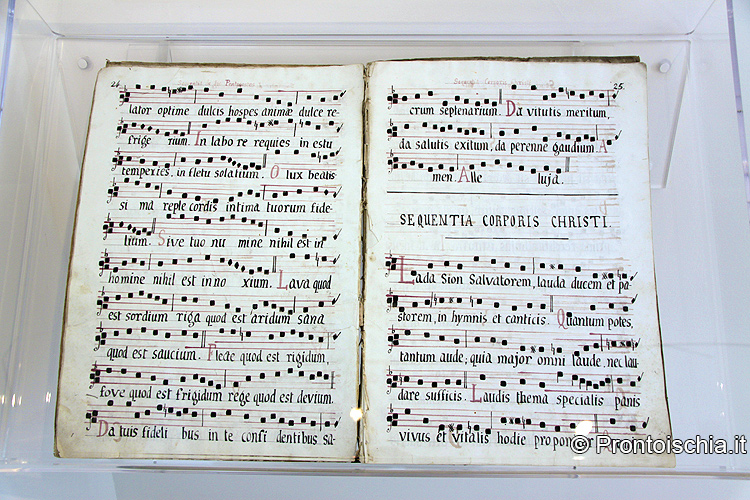 24
lator optime dulcis hospes animæ dulce re-
frige rium. In labo re requies in estu
temperies, in fletu solatium. O lux beatis
si ma reple cordis intima tuorum fide-
lium. Sive tuo nu mine nihil est in
homine nihil est inno xium. Lava quod
est sordium riga quod est aridum sana
quod est saucium. Flecte quod est rigidum,
fove quod est frigidum rege quod est devium.
Da tuis fideli bus in te confi dentibus sa-
25.
crum septenarium. Da vitutis meritum,
da salutis exitum, da perenne gaudium. A
men. Alle luja.
SEQUENTIA CORPORIS CHRISTI.
Lada Sion Salvatorem, lauda ducem et pa-
storem, in hymnis et canticis. Quantum potes,
tantum aude; quia major omni laude, nec lau
dare sufficis. Laudis thema specialis panis
vivus et vitalis hodie propon
© Prontoischia.it